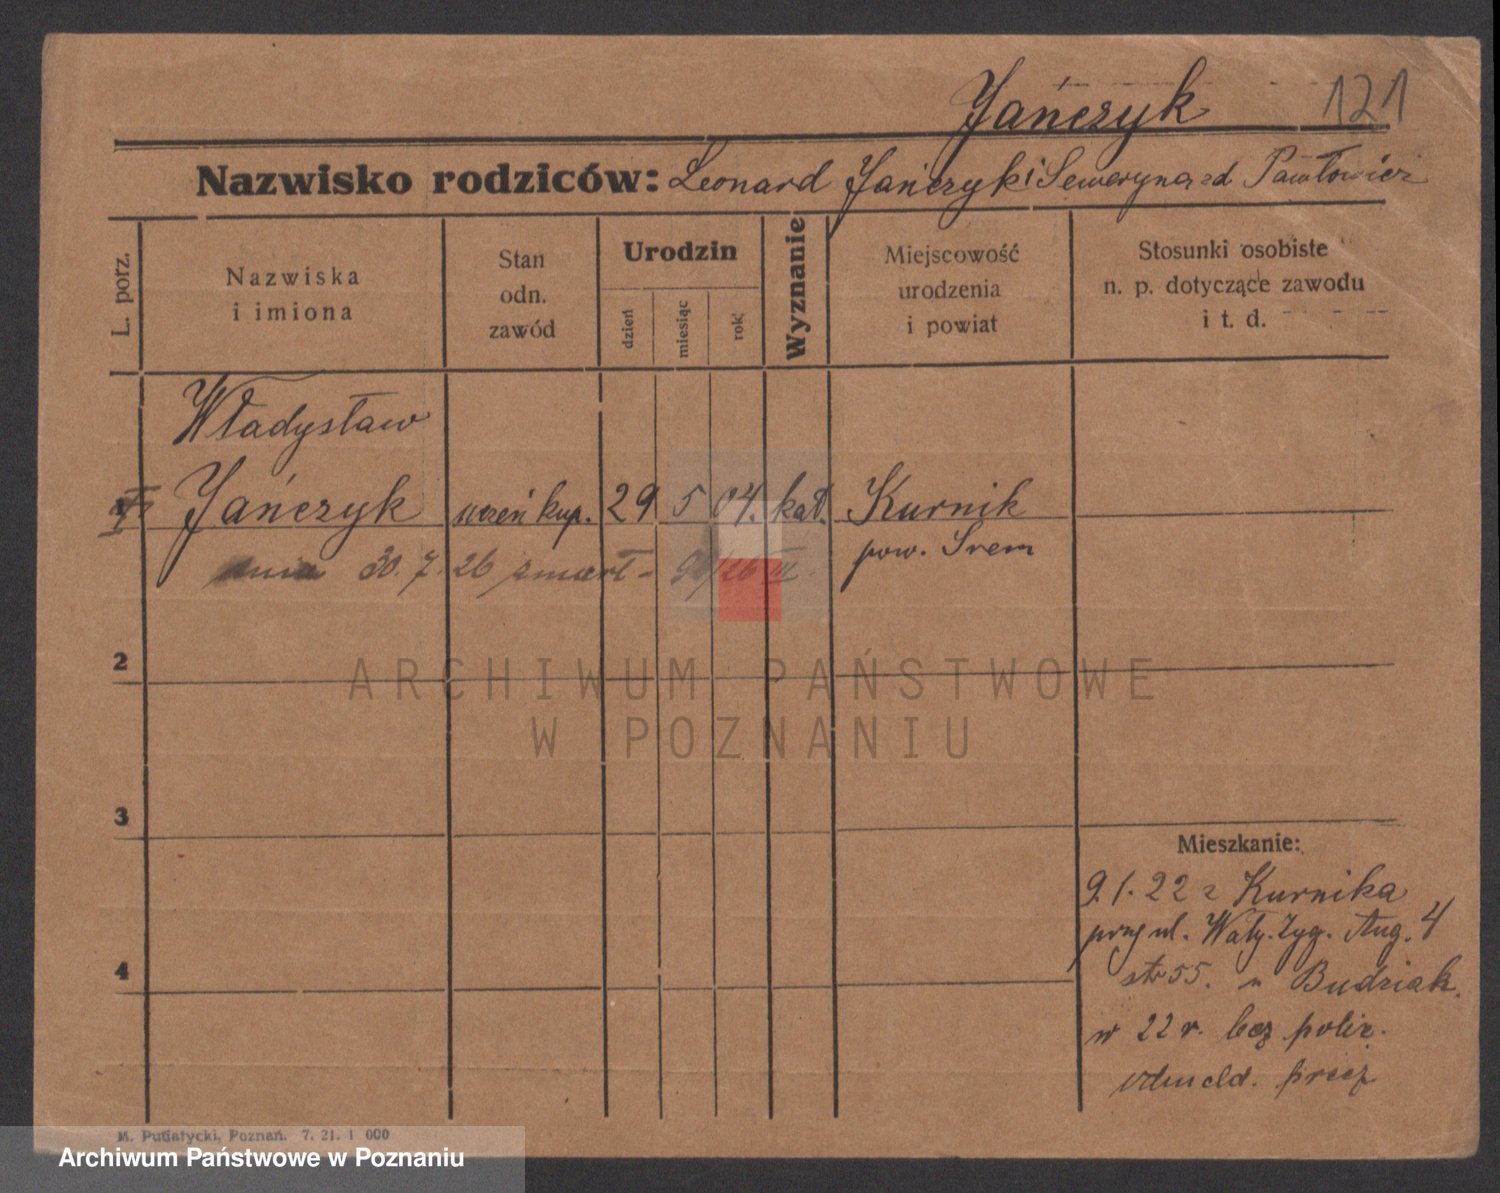 Jańczyk 121
Nazwisko rodziców: Leonard Jańczyk i Seweryna zd Pawłowicz
L. porz.
Nazwiska
i imiona
Stan
odn.
zawód
Urodzin
dzień
miesiąc
rok
Wyznanie
Miejscowość
urodzenia
i powiat
Stosunki osobiste
n. p. dotyczące zawodu
i t. d.
Władysław
1 Jańczyk uczeń kup. 29 5 04. kat. Kurnik
pow. Srem
dnia 30. 7. 26 zmarł - 26 III
2
ARCHIWUM PAŃSTWOWE
W POZNANIU
3
Mieszkanie:
9.1.22 z Kurnika
przy ul. Wały. Zyg. Aug. 4
str 55. u Budziak.
4
w 22 r. bez polic.
odmeld. precz
M. Putiatycki, Poznań. 7. 21. 1 000
Archiwum Państwowe w Poznaniu